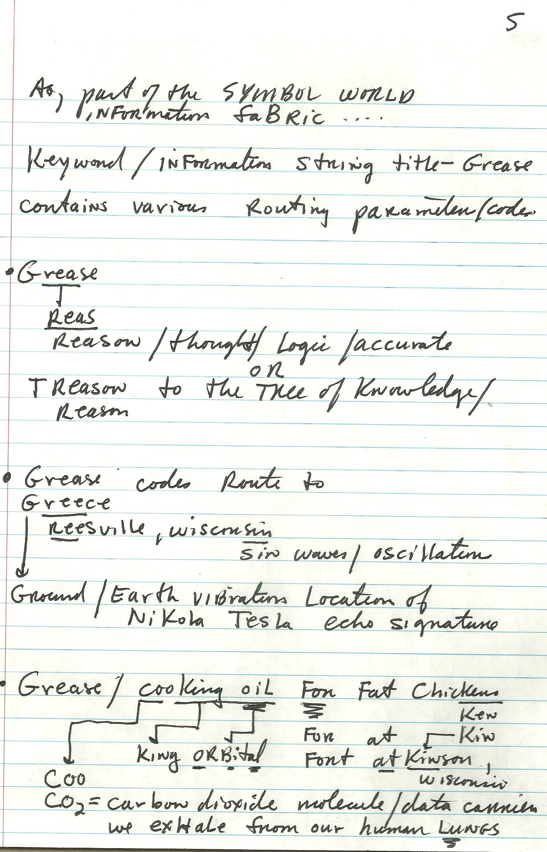 5
As, part of the SYMBOL WORLD
INFORmation FaBRic ....
Keyword / INFormation string title- Grease
contains various Routing parameter/codes
• Grease
Reas
Reason / thought / Logic / accurate
OR
TReason to the Tree of Knowledge/
Reason
• Grease codes Route to
Greece
Reesville, wisconsin
sin waves / oscillation
Ground / Earth vibration Location of
Nikola Tesla echo signature
• Grease / cooking oil For Fat Chickens
Ken
For at Kin
King ORBital Font atkinson,
wisconsin
Coo
CO2 = carbon dioxide molecule / data carrier
we exhale from our human LUNGS